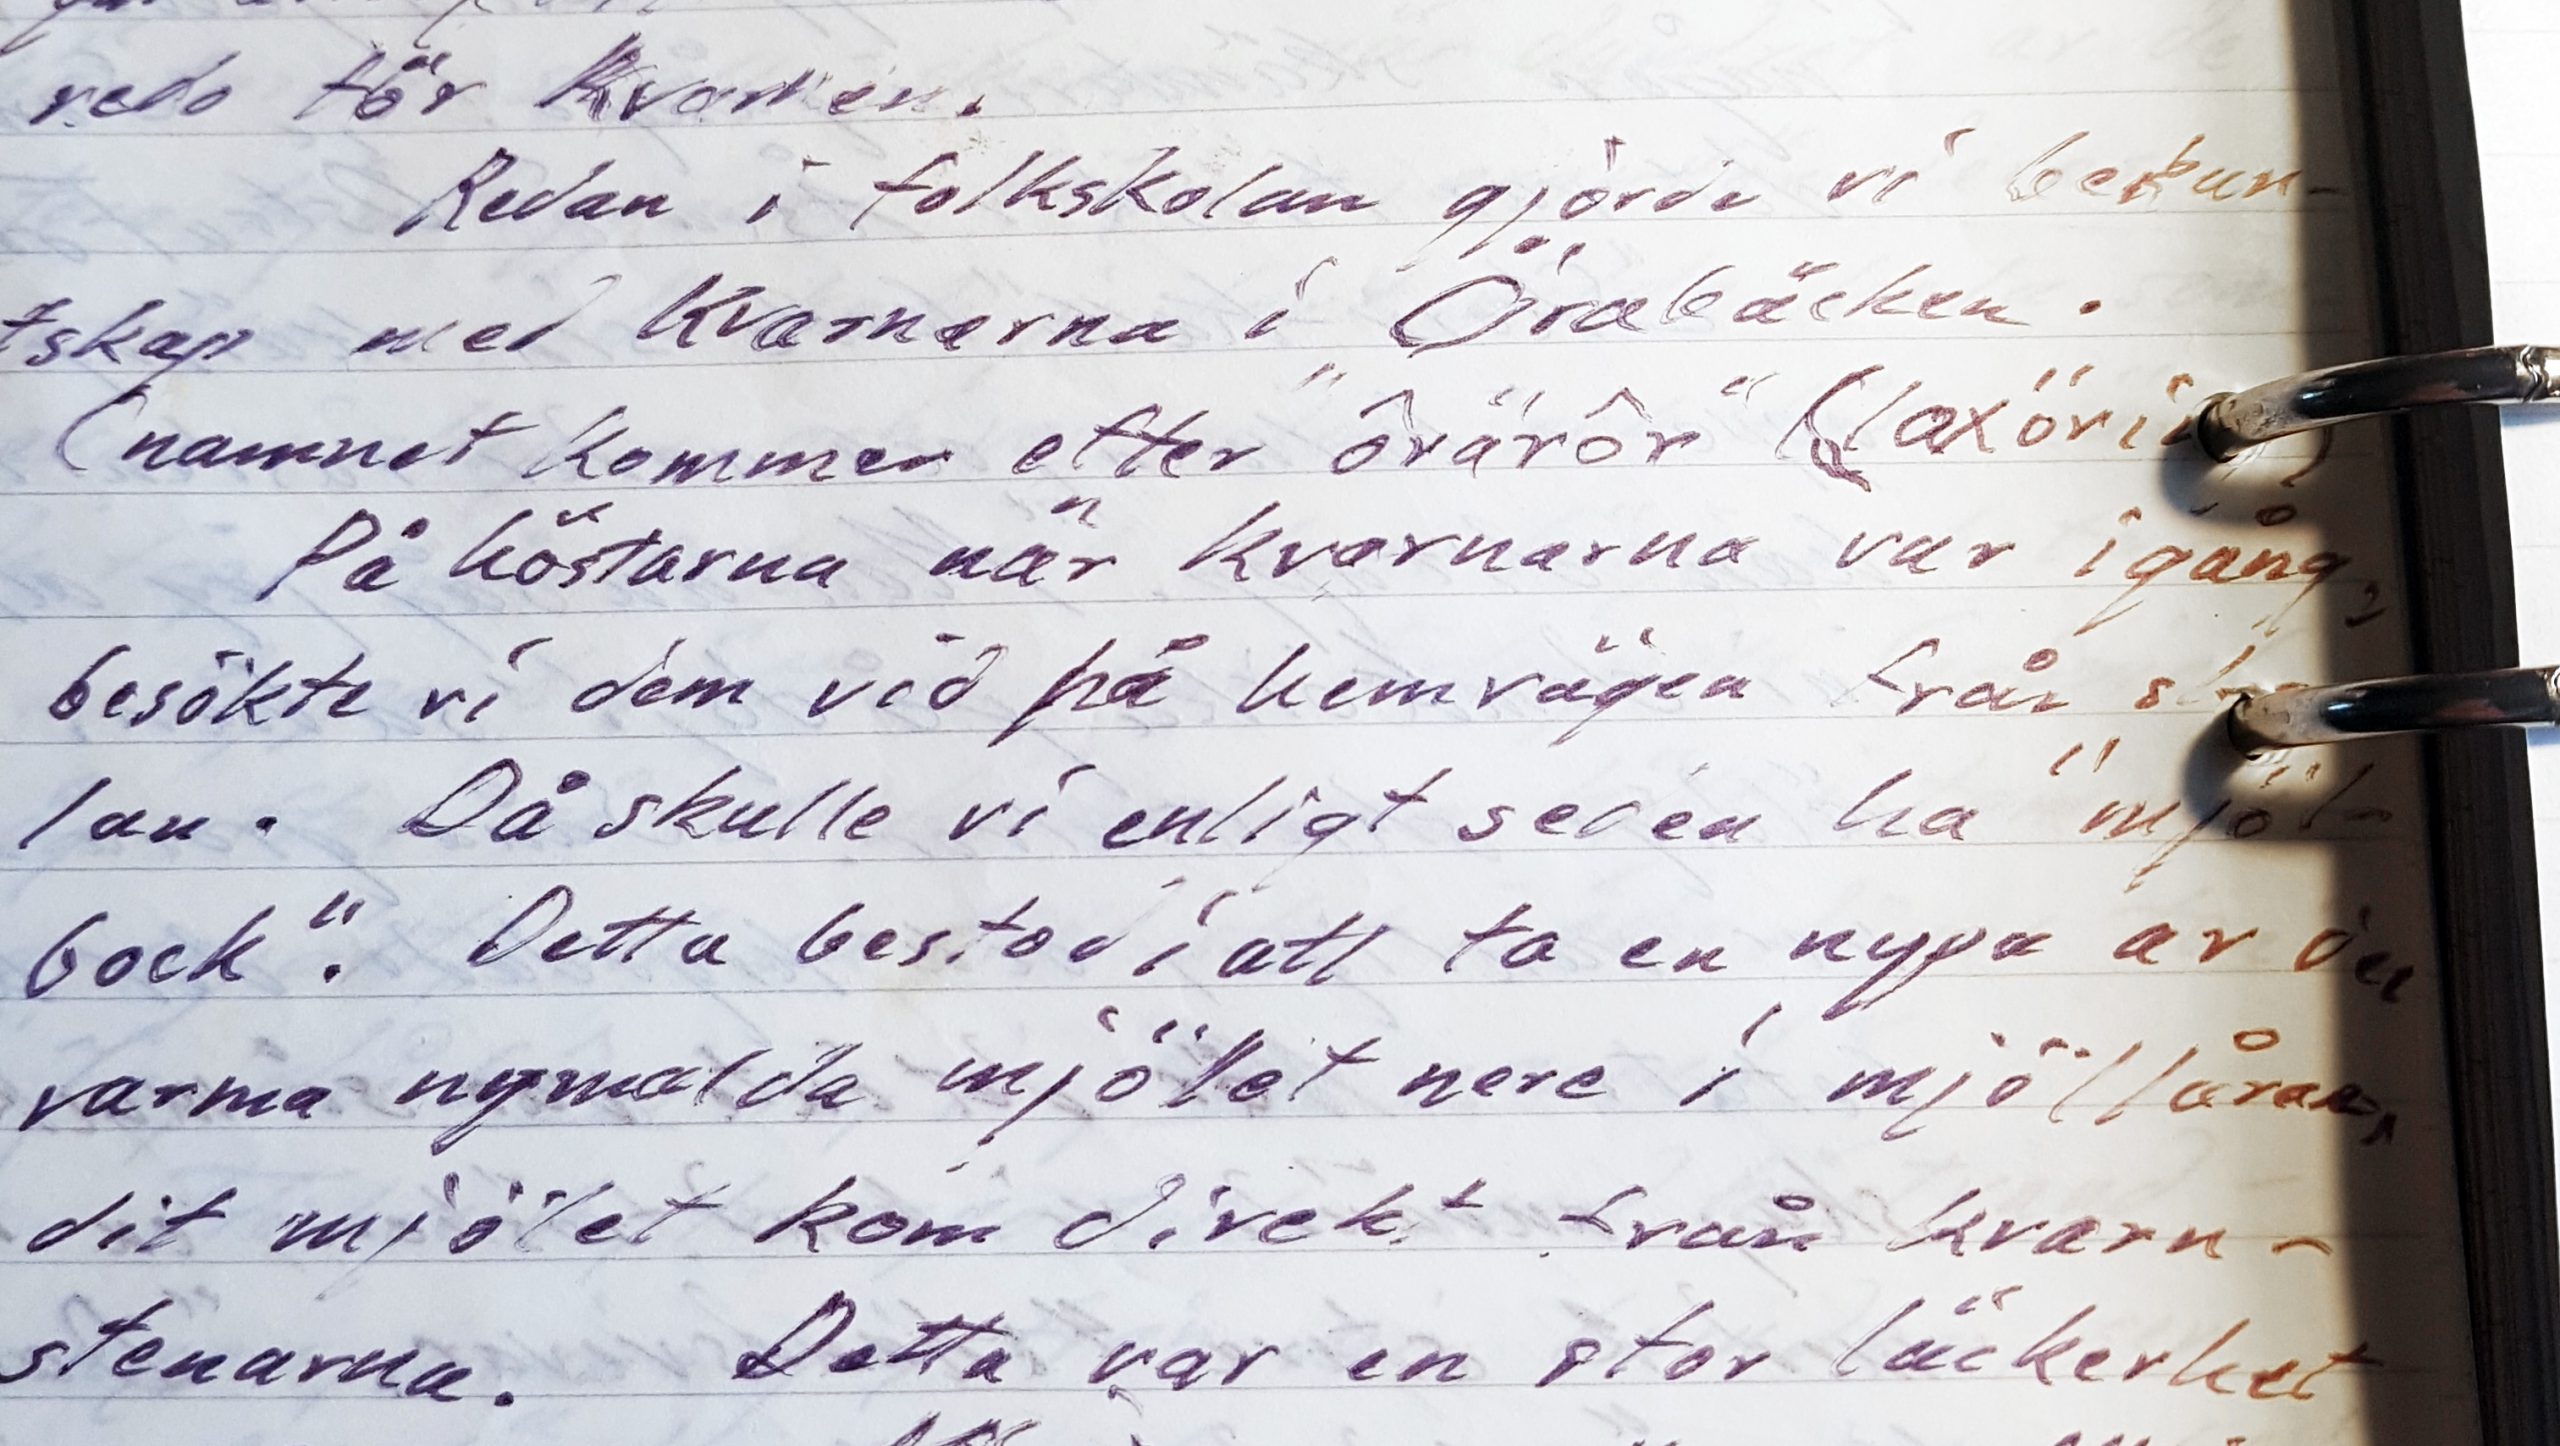 redo för Kvarnen.
Redan i folkskolan gjorde vi bekun-
tskap med Kvarnarna i Örabäcken.
(namnet Kommer efter "ôrärôr" (laxörin
På höstarna när kvarnarna var igång,
besökte vi dem vid på hemvägen från sko
lan. Då skulle vi enligt seden ha "mjöl-
bock". Detta bestod i att ta en nypa av det
varma nymalda mjölet nere i mjöllåran,
dit mjölet kom direkt från kvarn-
stenarna. Detta var en stor läckerhet